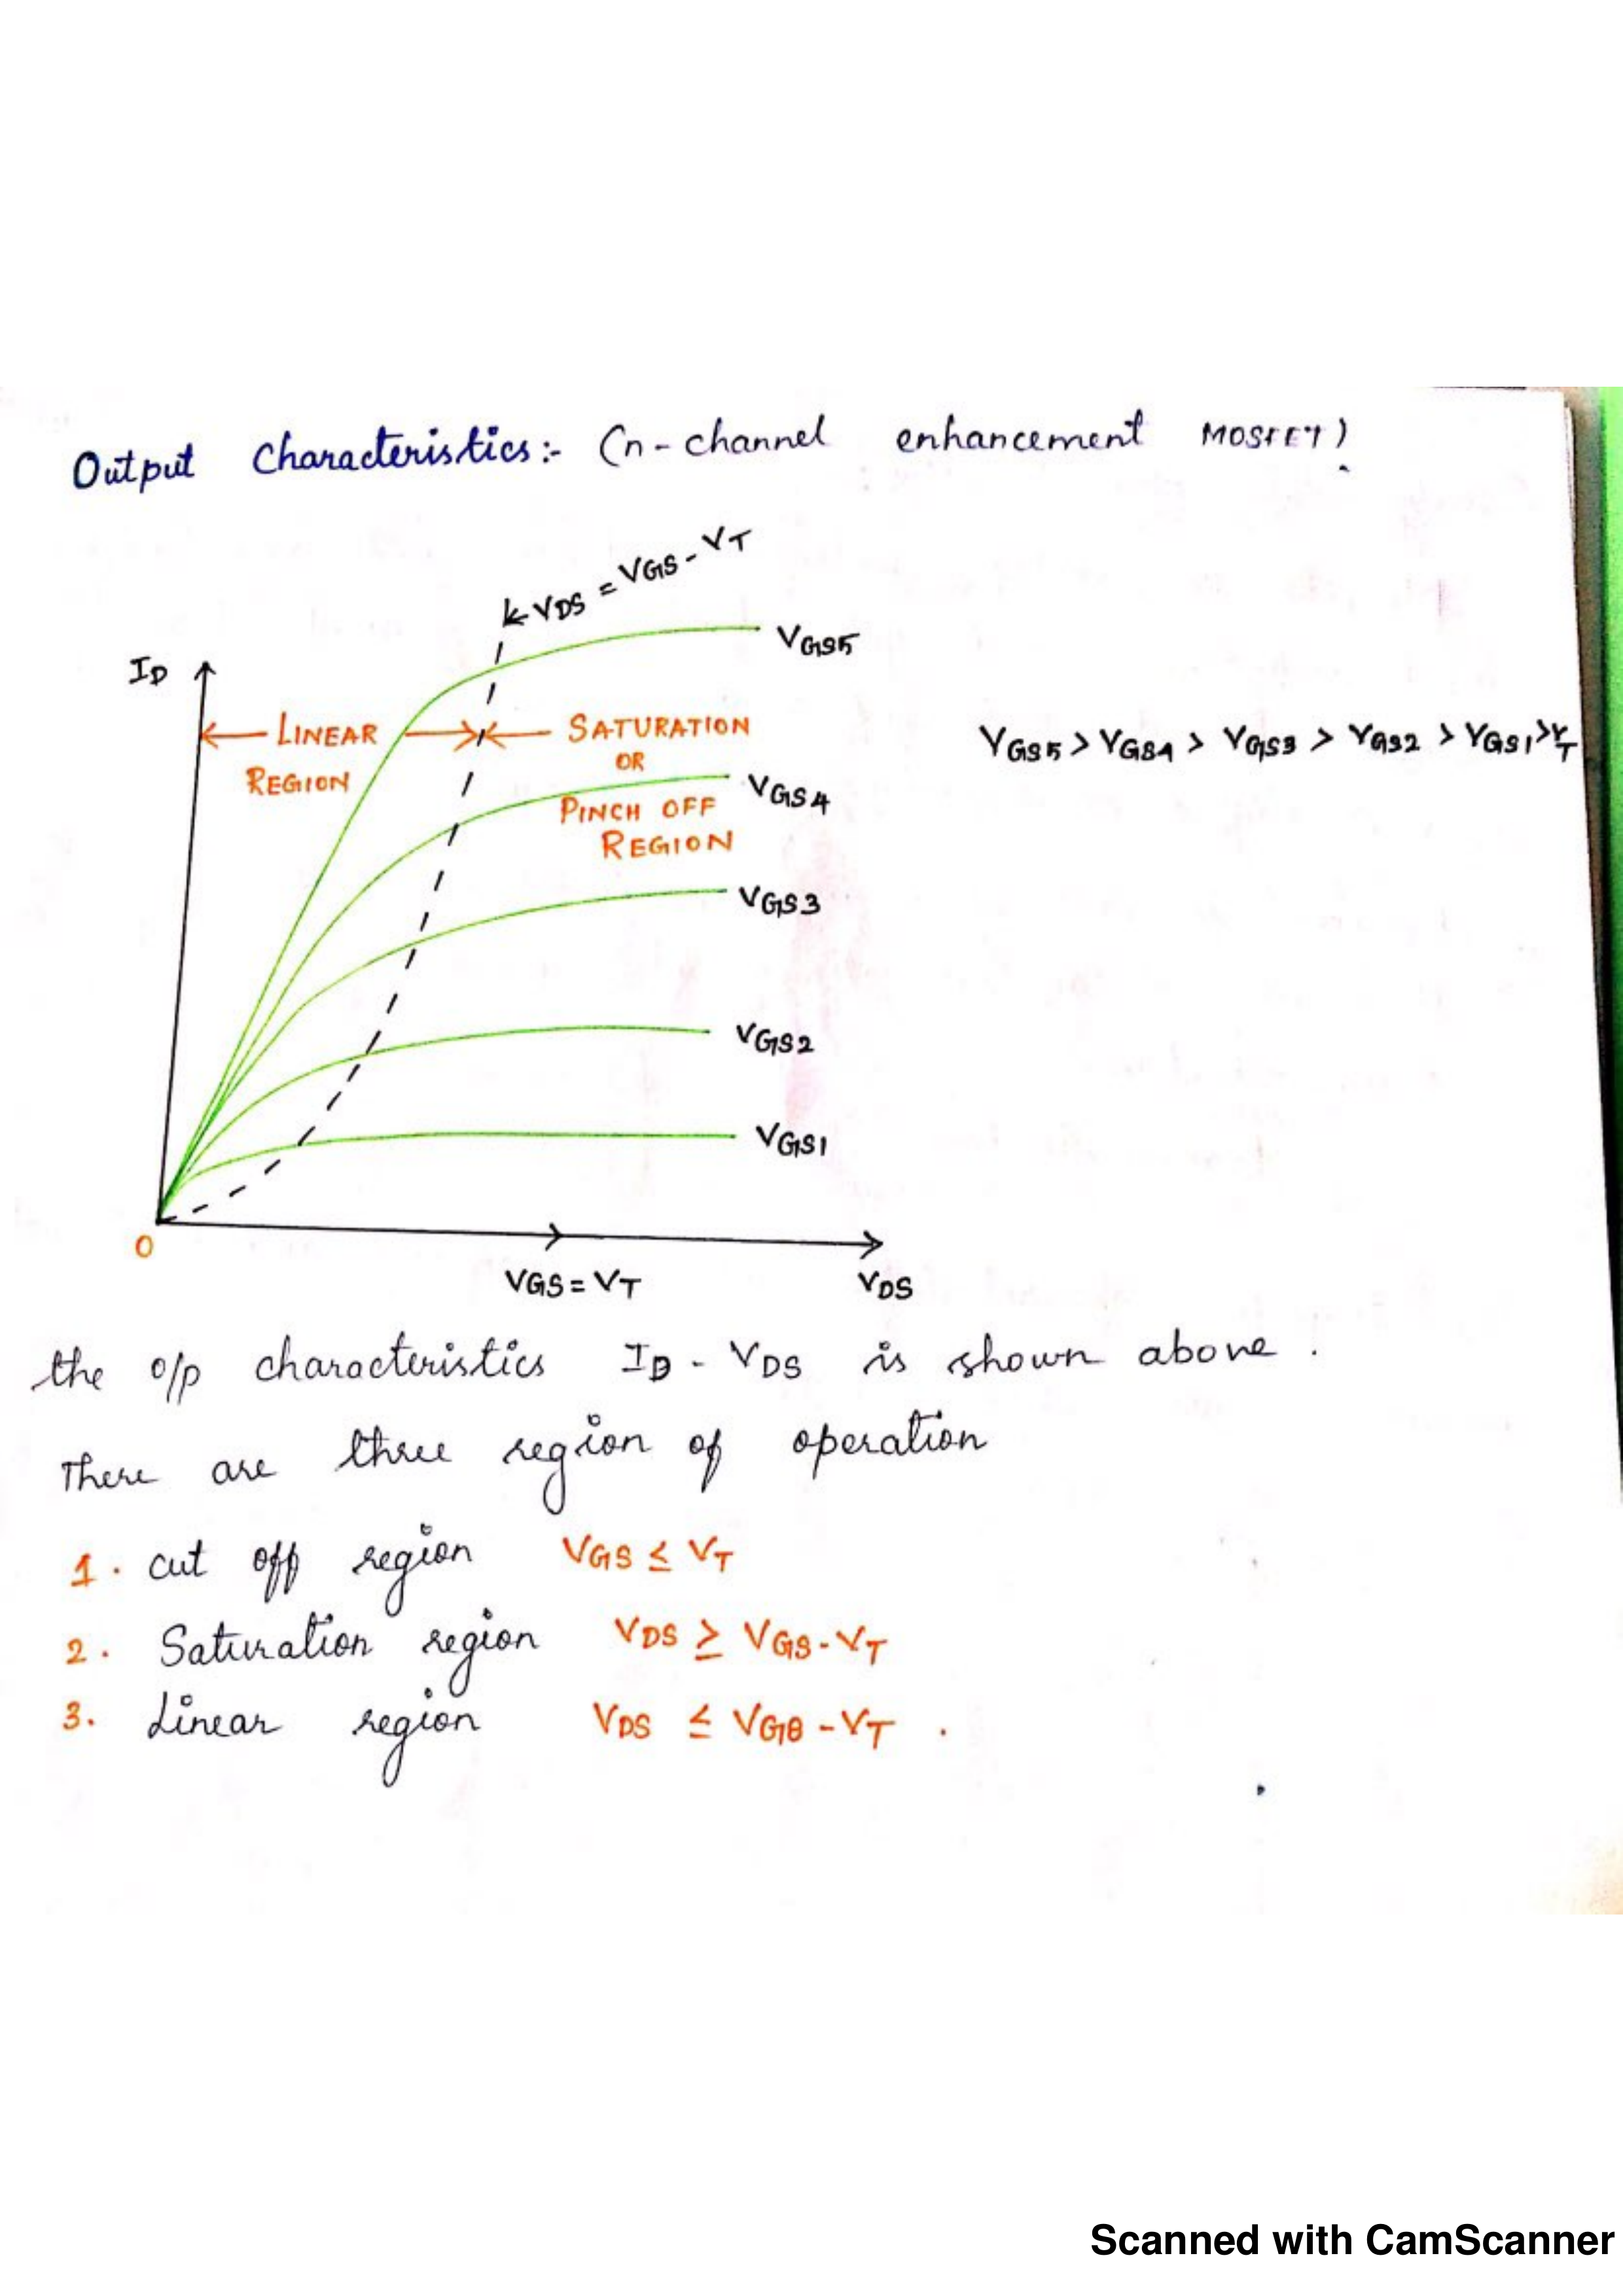 Output Characteristics:- (n-channel enhancement MOSFET)
VDS = VGS - VT
ID
VGS5
LINEAR REGION
SATURATION OR PINCH OFF REGION
VGS5 > VGS4 > VGS3 > VGS2 > VGS1 > VT
VGS4
VGS3
VGS2
VGS1
0
VGS = VT
VDS
the o/p characteristics ID - VDS is shown above.
There are three region of operation
1. cut off region VGS ≤ VT
2. Saturation region VDS ≥ VGS - VT
3. Linear region VDS ≤ VGS - VT.
Scanned with CamScanner